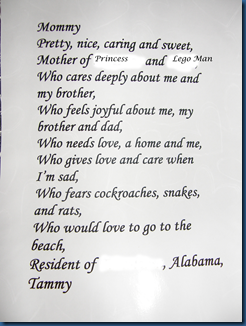 Mommy
Pretty, nice, caring and sweet,
Mother of Princess and Lego Man
Who cares deeply about me and
my brother,
Who feels joyful about me, my
brother and dad,
Who needs love, a home and me,
Who gives love and care when
I'm sad,
Who fears cockroaches, snakes,
and rats,
Who would love to go to the
beach,
Resident of , Alabama,
Tammy